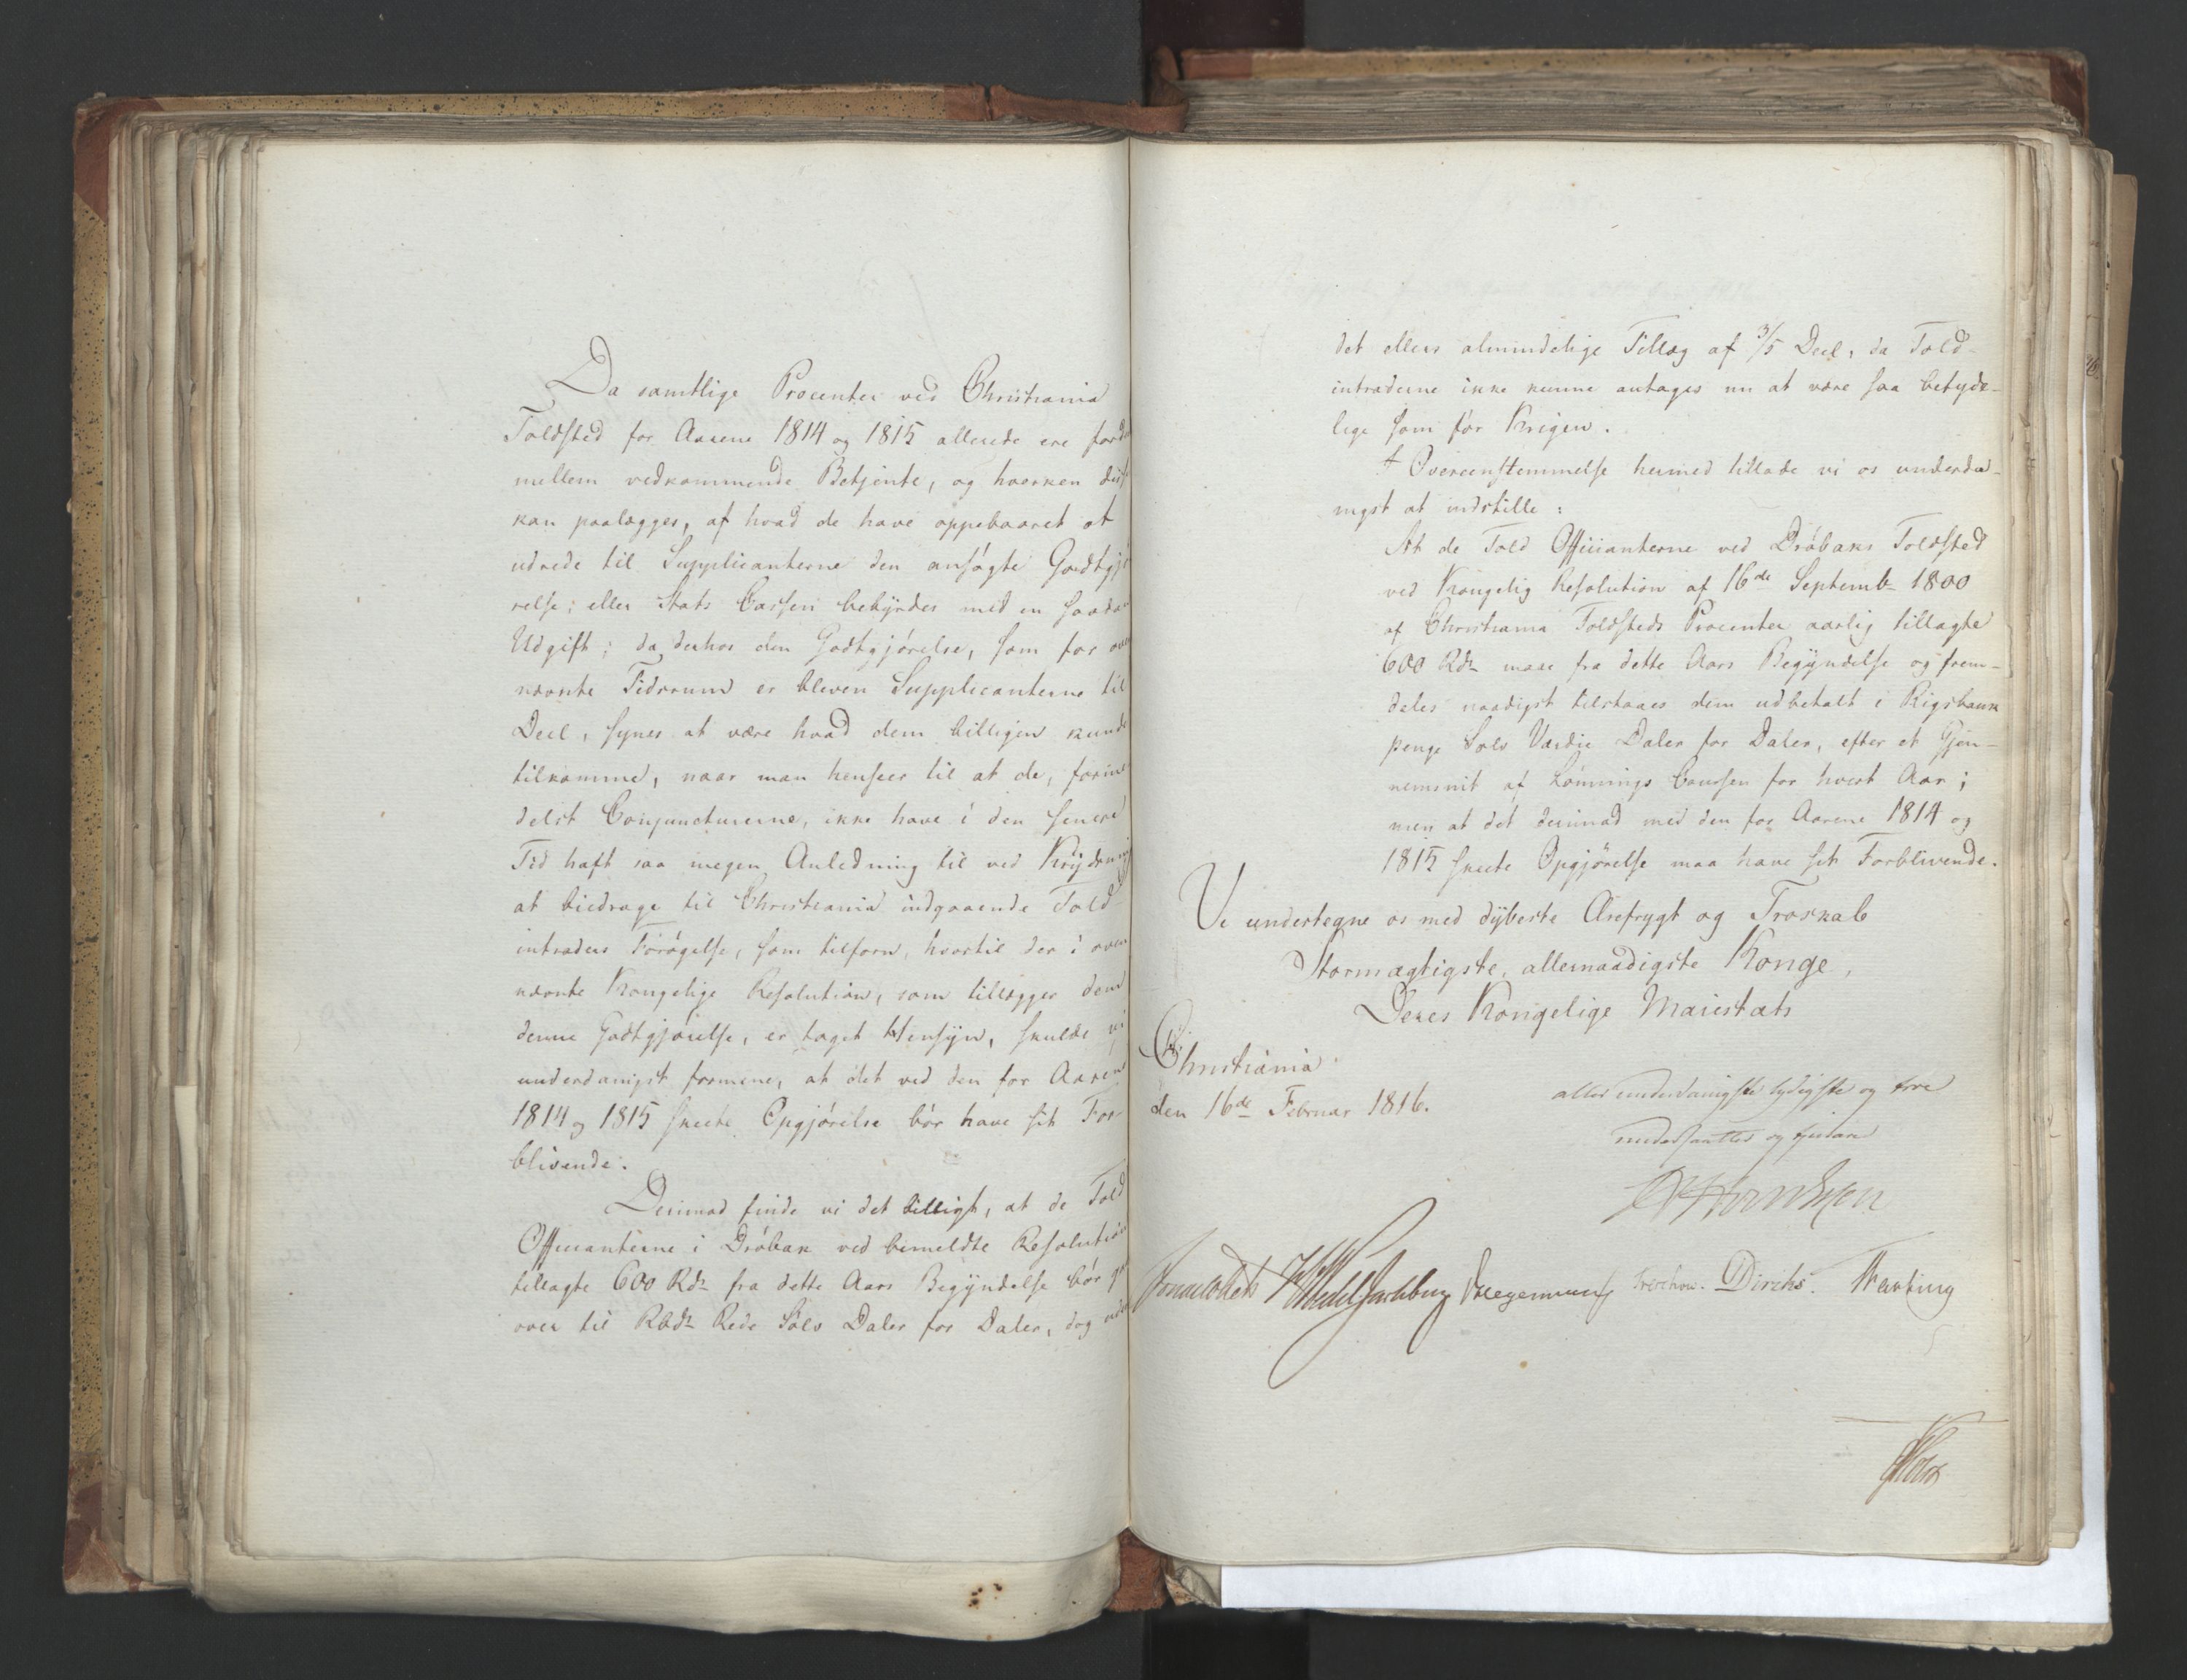 Da samtlige Procenter ved Christiania
Toldsted for Aarene 1814 og 1815 allerede ere fordel
mellem vedkommende Betjente, og hverken disse
kan paalægges, af hvad de have oppebaaret at
udrede til Supplicanterne den ansøgte Godtgjø
relse; eller Stats Cassen bebyrdes med en saadan
Udgift; da derhos den Godtgjørelse, som for oven
nævnte Tidsrum er bleven Supplicanterne til
Deel, synes at være hvad dem billigen kunde
tilkomme, naar man henseer til at de, forme
delst Conjuncturerne, ikke have i den senere
Tid haft saa megen Anledning til ved Krydsning
at bidrage til Christiania indgaaende Told
intraders Forøgelse, som tilforn, hvortil der i oven
nævnte Kongelige Resolution, som tillægger dem
denne Godtgjørelse, er taget Hensyn, skulde vi
underdanigst formene, at det ved den for Aarene
1814 og 1815 skeete Opgjørelse bør have sit For
blivende.
Derimod finde vi det billigt, at de Told
Officianterne i Drøbak ved bemeldte Resolution
tillagte 600 Rdr fra dette Aars Begyndelse bør
over til Rbdr Rede Sølv Daler for Daler, dog uden
det ellers almindelige Tillæg af 3/5 Deel, da Told-
intraderne ikke kunne antages nu at være saa betyde-
lige som før Krigen.
I Overeenstemmelse hermed tillade vi os underda-
nigst at indstille:
At de Told Officianterne ved Drøbaks Toldsted
ved Kongelig Resolution af 16de Septembr 1800
af Christiania Toldsteds Procenter aarlig tillagte
600 Rdr maae fra dette Aars Begyndelse og frem-
deles naadigst tilstaaes dem udbetalt i Rigsbank
penge Sølv Værdie Daler for Daler, efter et Gjen-
nemsnit af Lønnings Coursen for hvert Aar;
men at det derimod med den for Aarene 1814 og
1815 skeete Opgjørelse maa have sit Forblivende.
Vi undertegne os med dybeste Ærefrygt og Troskab
Stormægtigste, allernaadigste Konge,
Deres Kongelige Maiestæts
Christiania
den 16de Februar 1816.
allerunderdanigste lydigste og troe
undersaatter og tjenere
Sommerhielm Wedel Jarlsberg Hegermann Treschow. Diriks. Fasting
Holst